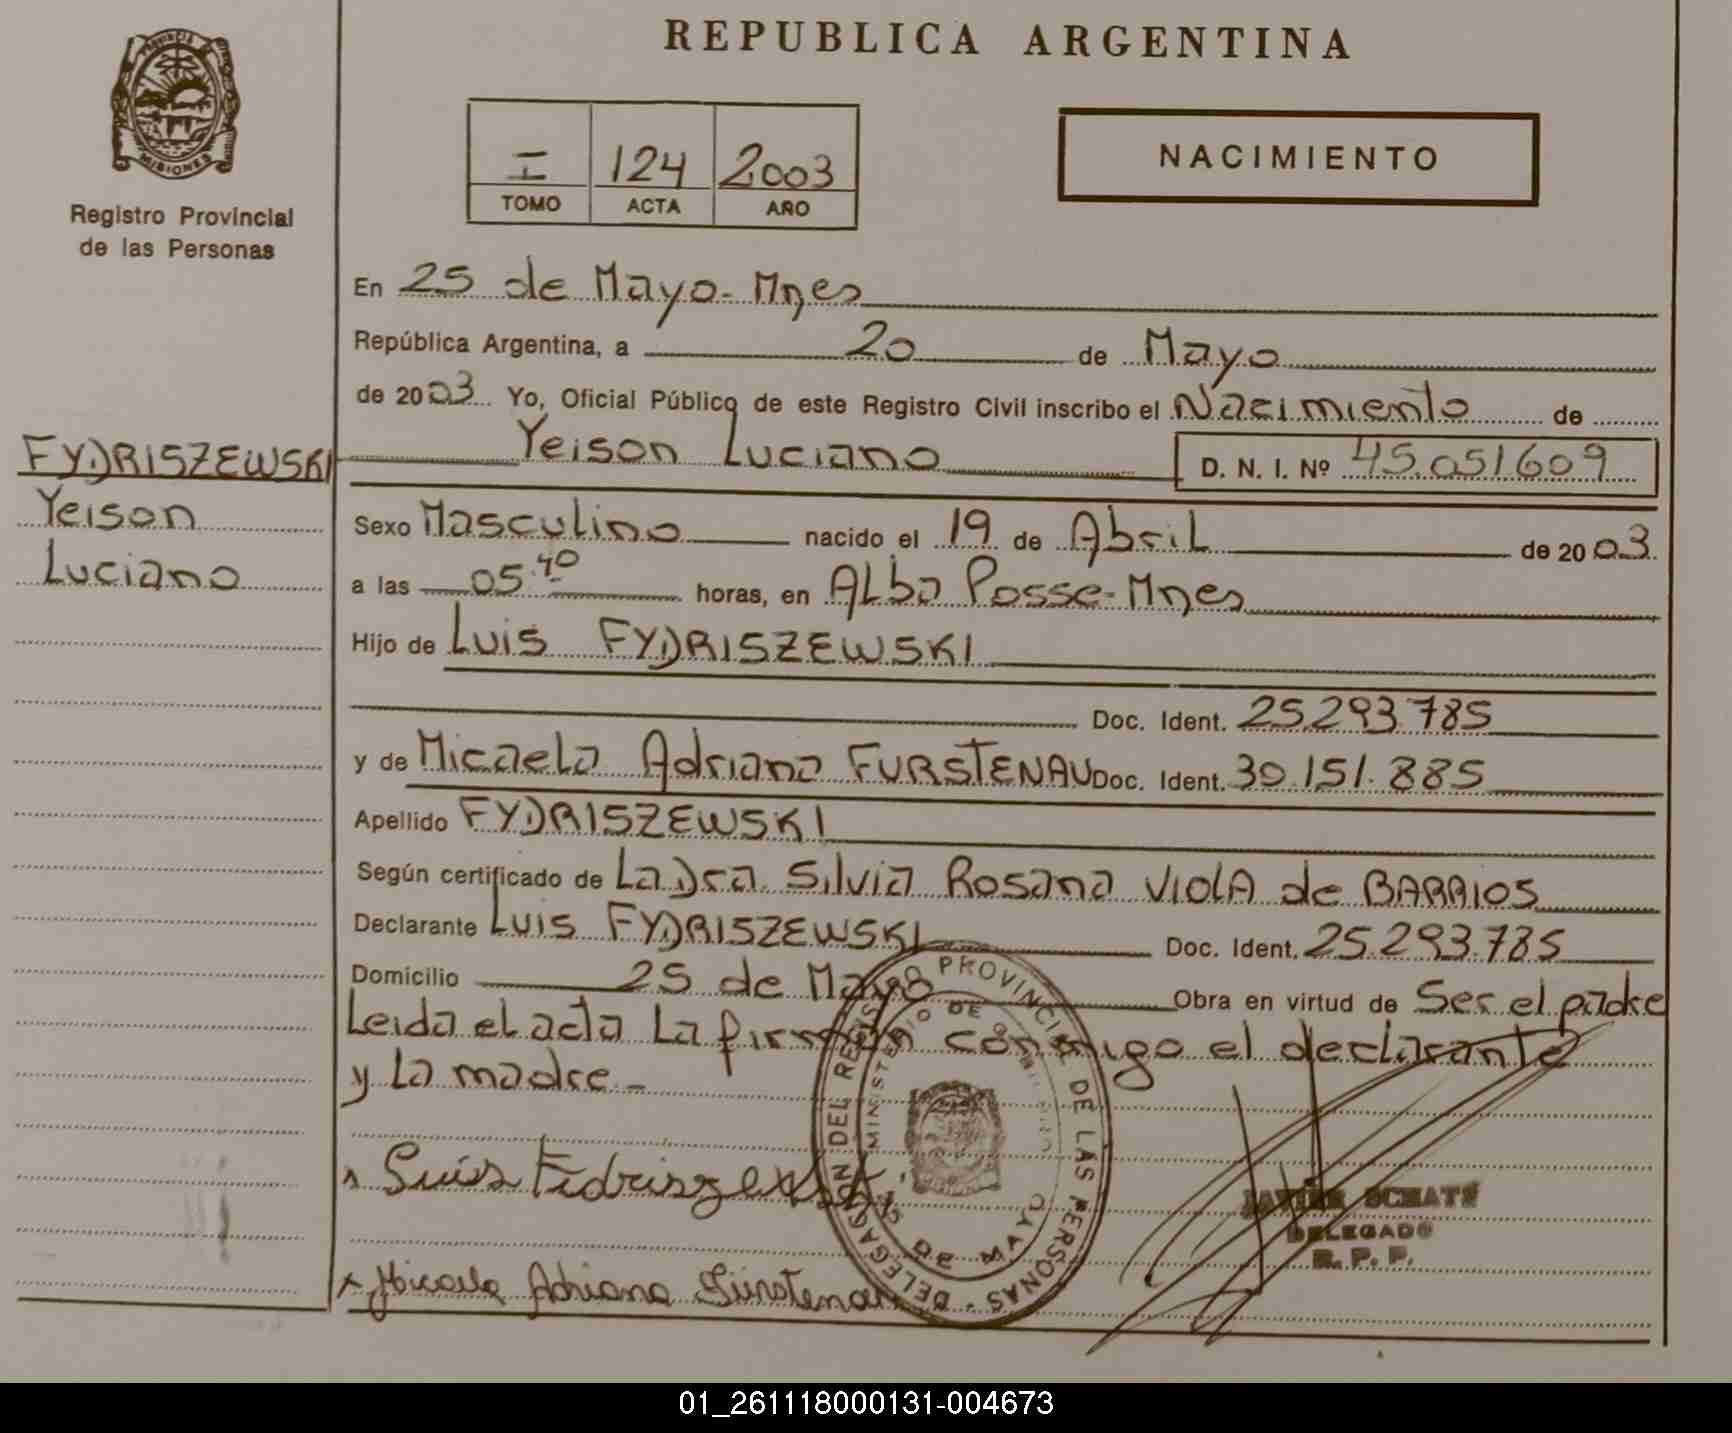 REPUBLICA ARGENTINA
PROVINCIA DE
MISIONES
Registro Provincial
de las Personas
I 124 2003
TOMO ACTA AÑO
NACIMIENTO
En 25 de Mayo - Mnes
República Argentina, a 20 de Mayo
de 2003 Yo, Oficial Público de este Registro Civil inscribo el Nacimiento de
FYDRISZEWSKI
Yeison
Luciano
Yeison Luciano D. N. I. Nº 45.051.609
Sexo Masculino nacido el 19 de Abril de 2003
a las 05.40 horas, en ALba Posse - Mnes
Hijo de Luis FYDRISZEWSKI
Doc. Ident. 25.293.785
y de Micaela Adriana FURSTENAU Doc. Ident. 30.151.885
Apellido FYDRISZEWSKI
Según certificado de La Dra. Silvia Rosana VIOLA de BARRIOS
Declarante Luis FYDRISZEWSKI Doc. Ident. 25.293.785
Domicilio 25 de Mayo Obra en virtud de Ser el padre
Leida el acta La firman conmigo el declarante
y La madre -
x Luis Fidriszewski
x Micaela Adriana Fürstenau
DELEGACION DEL REGISTRO PROVINCIAL DE LAS PERSONAS
MINISTERIO DE GOBIERNO
25 DE MAYO
JAVIER
DELEGADO
R. P. P.
01_261118000131-004673